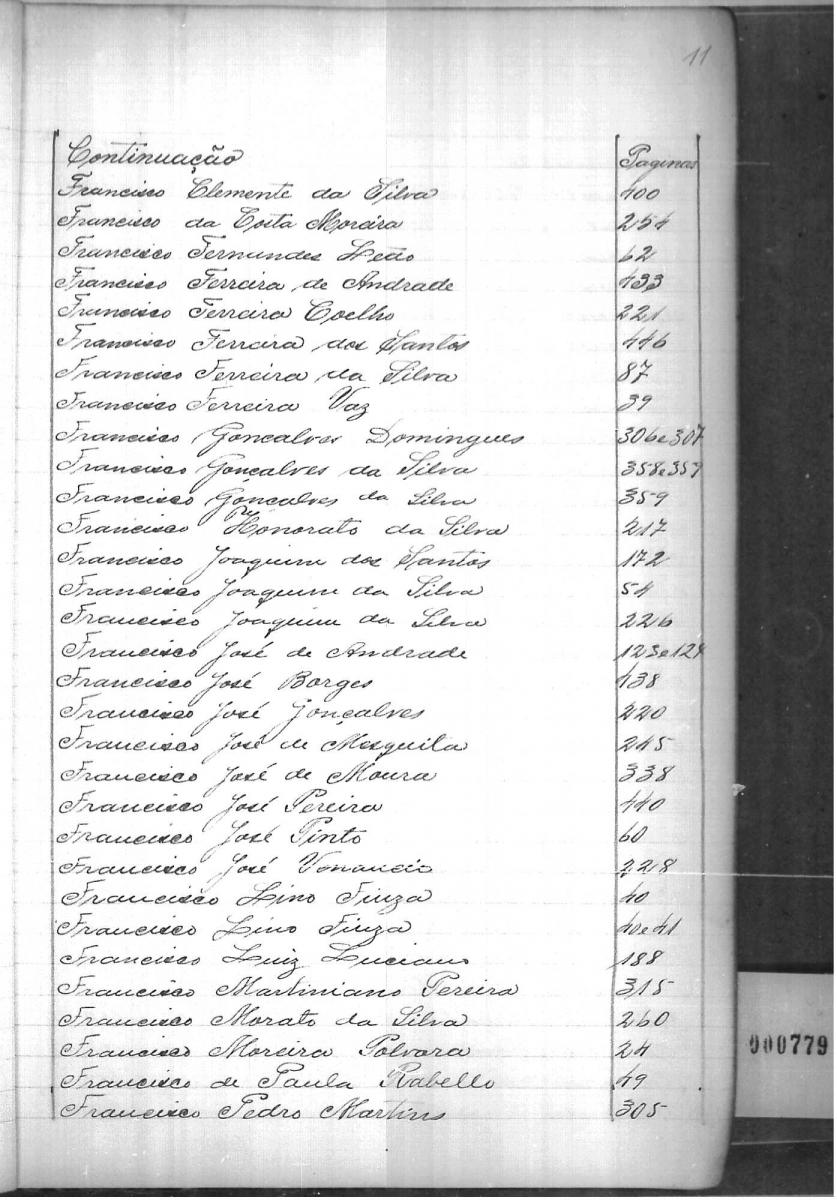 11
Continuação Paginas
Francisco Clemente da Silva 400
Francisco da Costa Moreira 254
Francisco Fernandes Leão 62
Francisco Ferreira de Andrade 433
Francisco Ferreira Coelho 221
Francisco Ferreira dos Santos 446
Francisco Ferreira da Silva 87
Francisco Ferreira Vaz 39
Francisco Goncalves Domingues 306 e 307
Francisco Gonçalves da Silva 358 e 359
Francisco Gonçalves da Silva 359
Francisco Honorato da Silva 217
Francisco Joaquim dos Santos 172
Francisco Joaquim da Silva 54
Francisco Joaquim da Silva 226
Francisco José de Andrade 123 e 124
Francisco José Borges 438
Francisco José Gonçalves 220
Francisco José de Mesquita 245
Francisco José de Moura 338
Francisco José Pereira 440
Francisco José Pinto 60
Francisco José Venancio 228
Francisco Lino Fiuza 40
Francisco Lino Fiuza 40 e 41
Francisco Luiz Luciano 188
Francisco Martiniano Pereira 315
Francisco Morato da Silva 260
Francisco Moreira Polvora 24
Francisco de Paula Rabello 49
Francisco Pedro Martins 305
000779